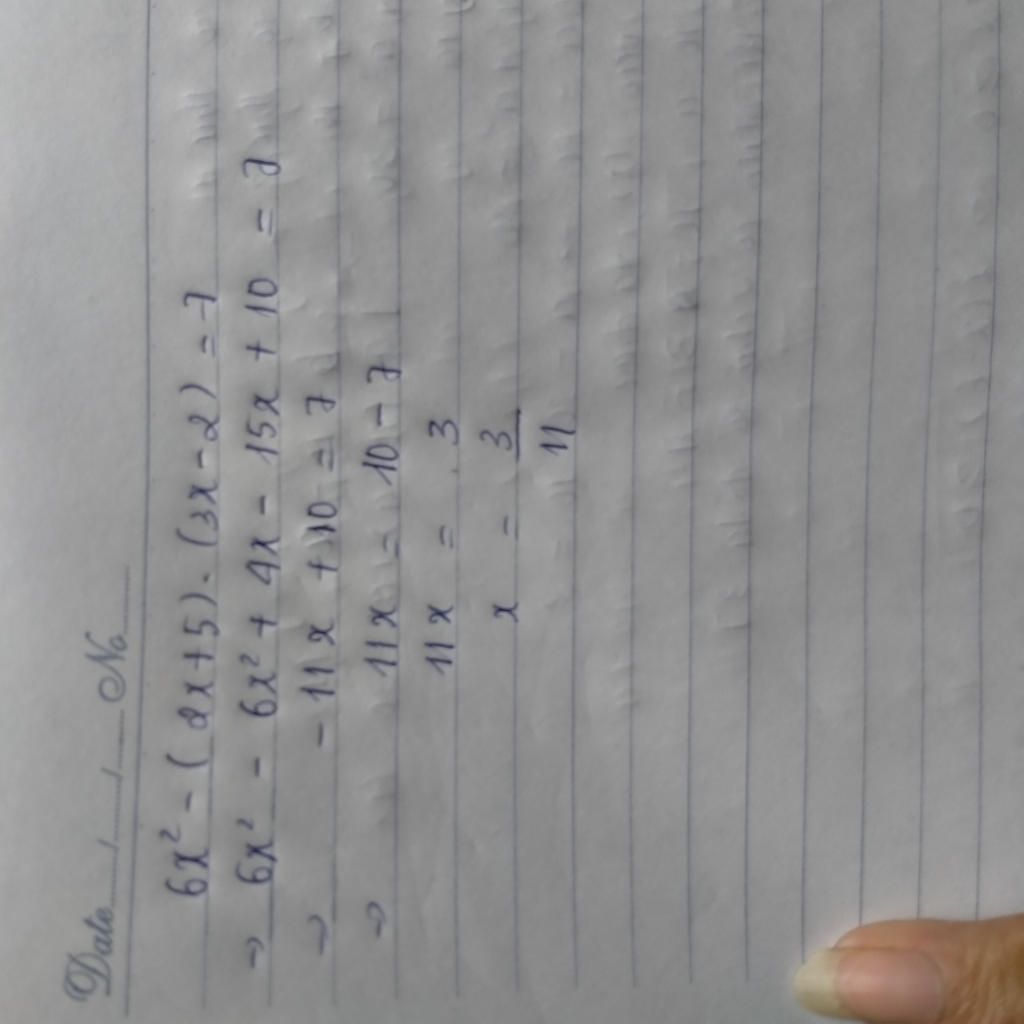 Date....../....../......No......
6x² - (2x+5).(3x-2) = 7
→ 6x² - 6x² + 4x - 15x + 10 = 7
→ -11x + 10 = 7
→ 11x = 10 - 7
11x = 3
x = 3/11